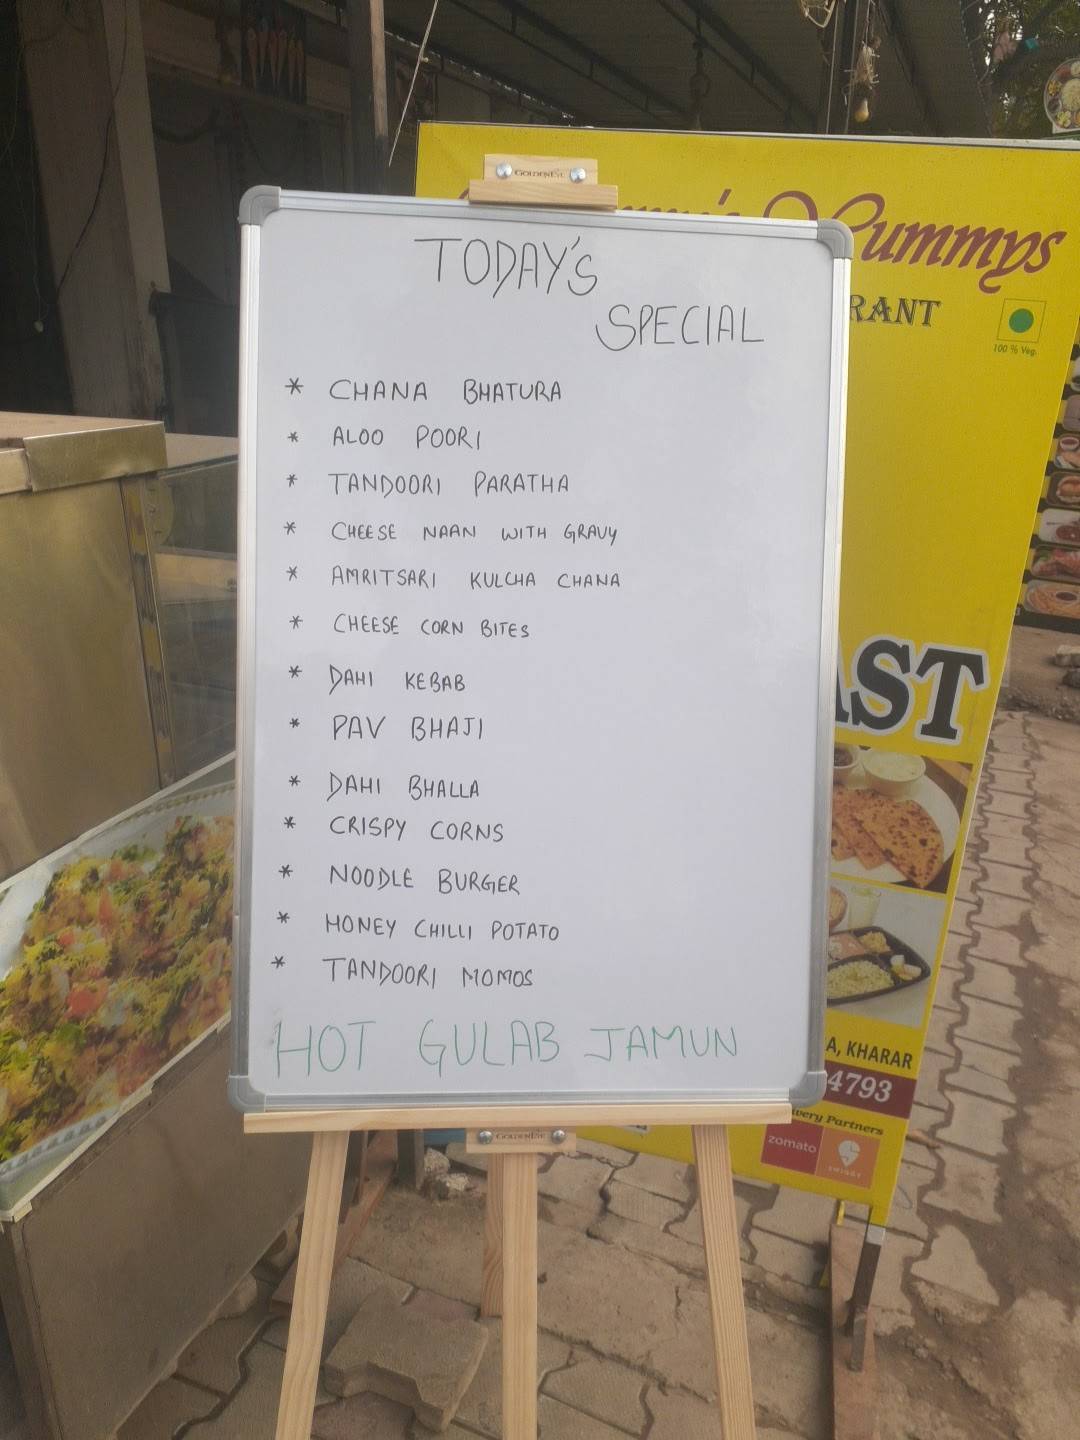 GOLDENEYE
TODAY'S
SPECIAL
* CHANA BHATURA
* ALOO POORI
* TANDOORI PARATHA
* CHEESE NAAN WITH GRAVY
* AMRITSARI KULCHA CHANA
* CHEESE CORN BITES
* DAHI KEBAB
* PAV BHAJI
* DAHI BHALLA
* CRISPY CORNS
* NOODLE BURGER
* HONEY CHILLI POTATO
* TANDOORI MOMOS
HOT GULAB JAMUN
GOLDENEYE
RANT
100 % Veg.
AST
A, KHARAR
4793
very Partners
zomato
SWIGGY